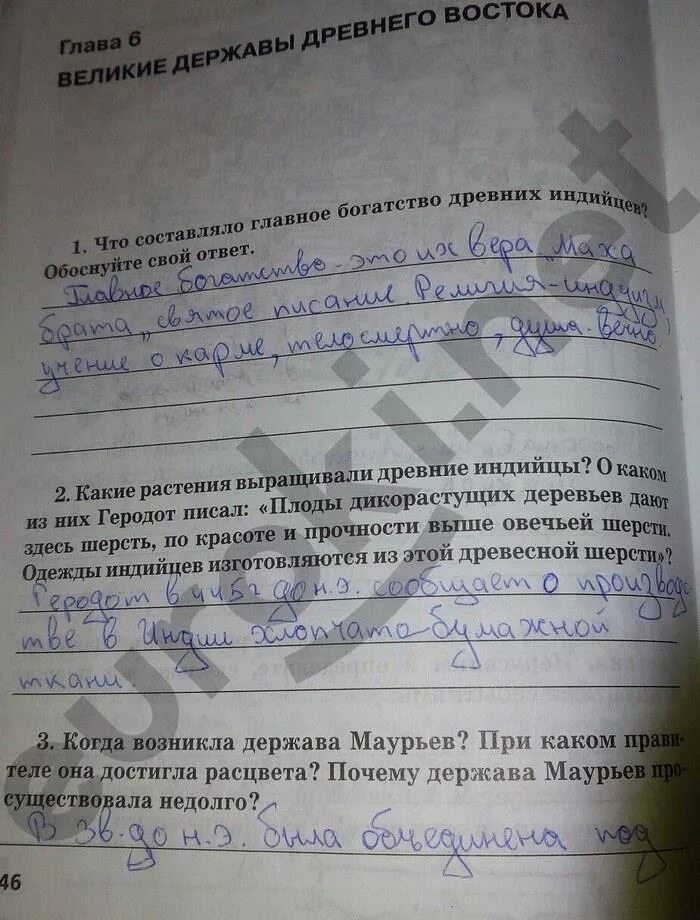 Глава 6
ВЕЛИКИЕ ДЕРЖАВЫ ДРЕВНЕГО ВОСТОКА
1. Что составляло главное богатство древних индийцев?
Обоснуйте свой ответ.
Главное богатство - это их вера „Маха
брата„ святое писание. Религия - индуизм,
учение о карме, тело смертно, душа - вечно.
2. Какие растения выращивали древние индийцы? О каком
из них Геродот писал: «Плоды дикорастущих деревьев дают
здесь шерсть, по красоте и прочности выше овечьей шерсти.
Одежды индийцев изготовляются из этой древесной шерсти»?
Геродот в 445г до н.э. сообщает о производс
тве в Индии хлопчато-бумажной
ткани.
3. Когда возникла держава Маурьев? При каком прави-
теле она достигла расцвета? Почему держава Маурьев про-
существовала недолго?
В 3в. до н.э. была объединена под
46
euroki.net